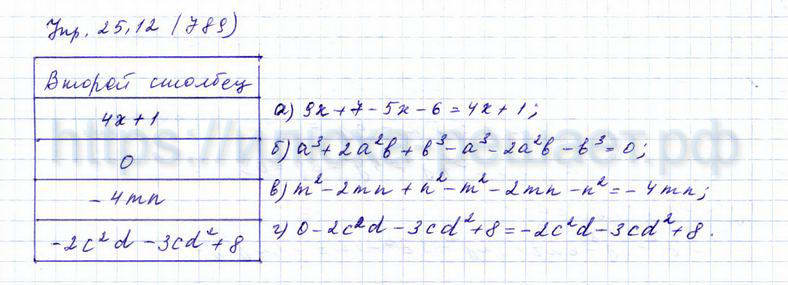 Упр. 25.12 (789)
Второй столбец
4x+1
0
-4mn
-2c²d-3cd²+8
а) 9x+7-5x-6=4x+1;
б) a³+2a²b+b³-a³-2a²b-b³=0;
в) m²-2mn+n²-m²-2mn-n²=-4mn;
г) 0-2c²d-3cd²+8=-2c²d-3cd²+8.